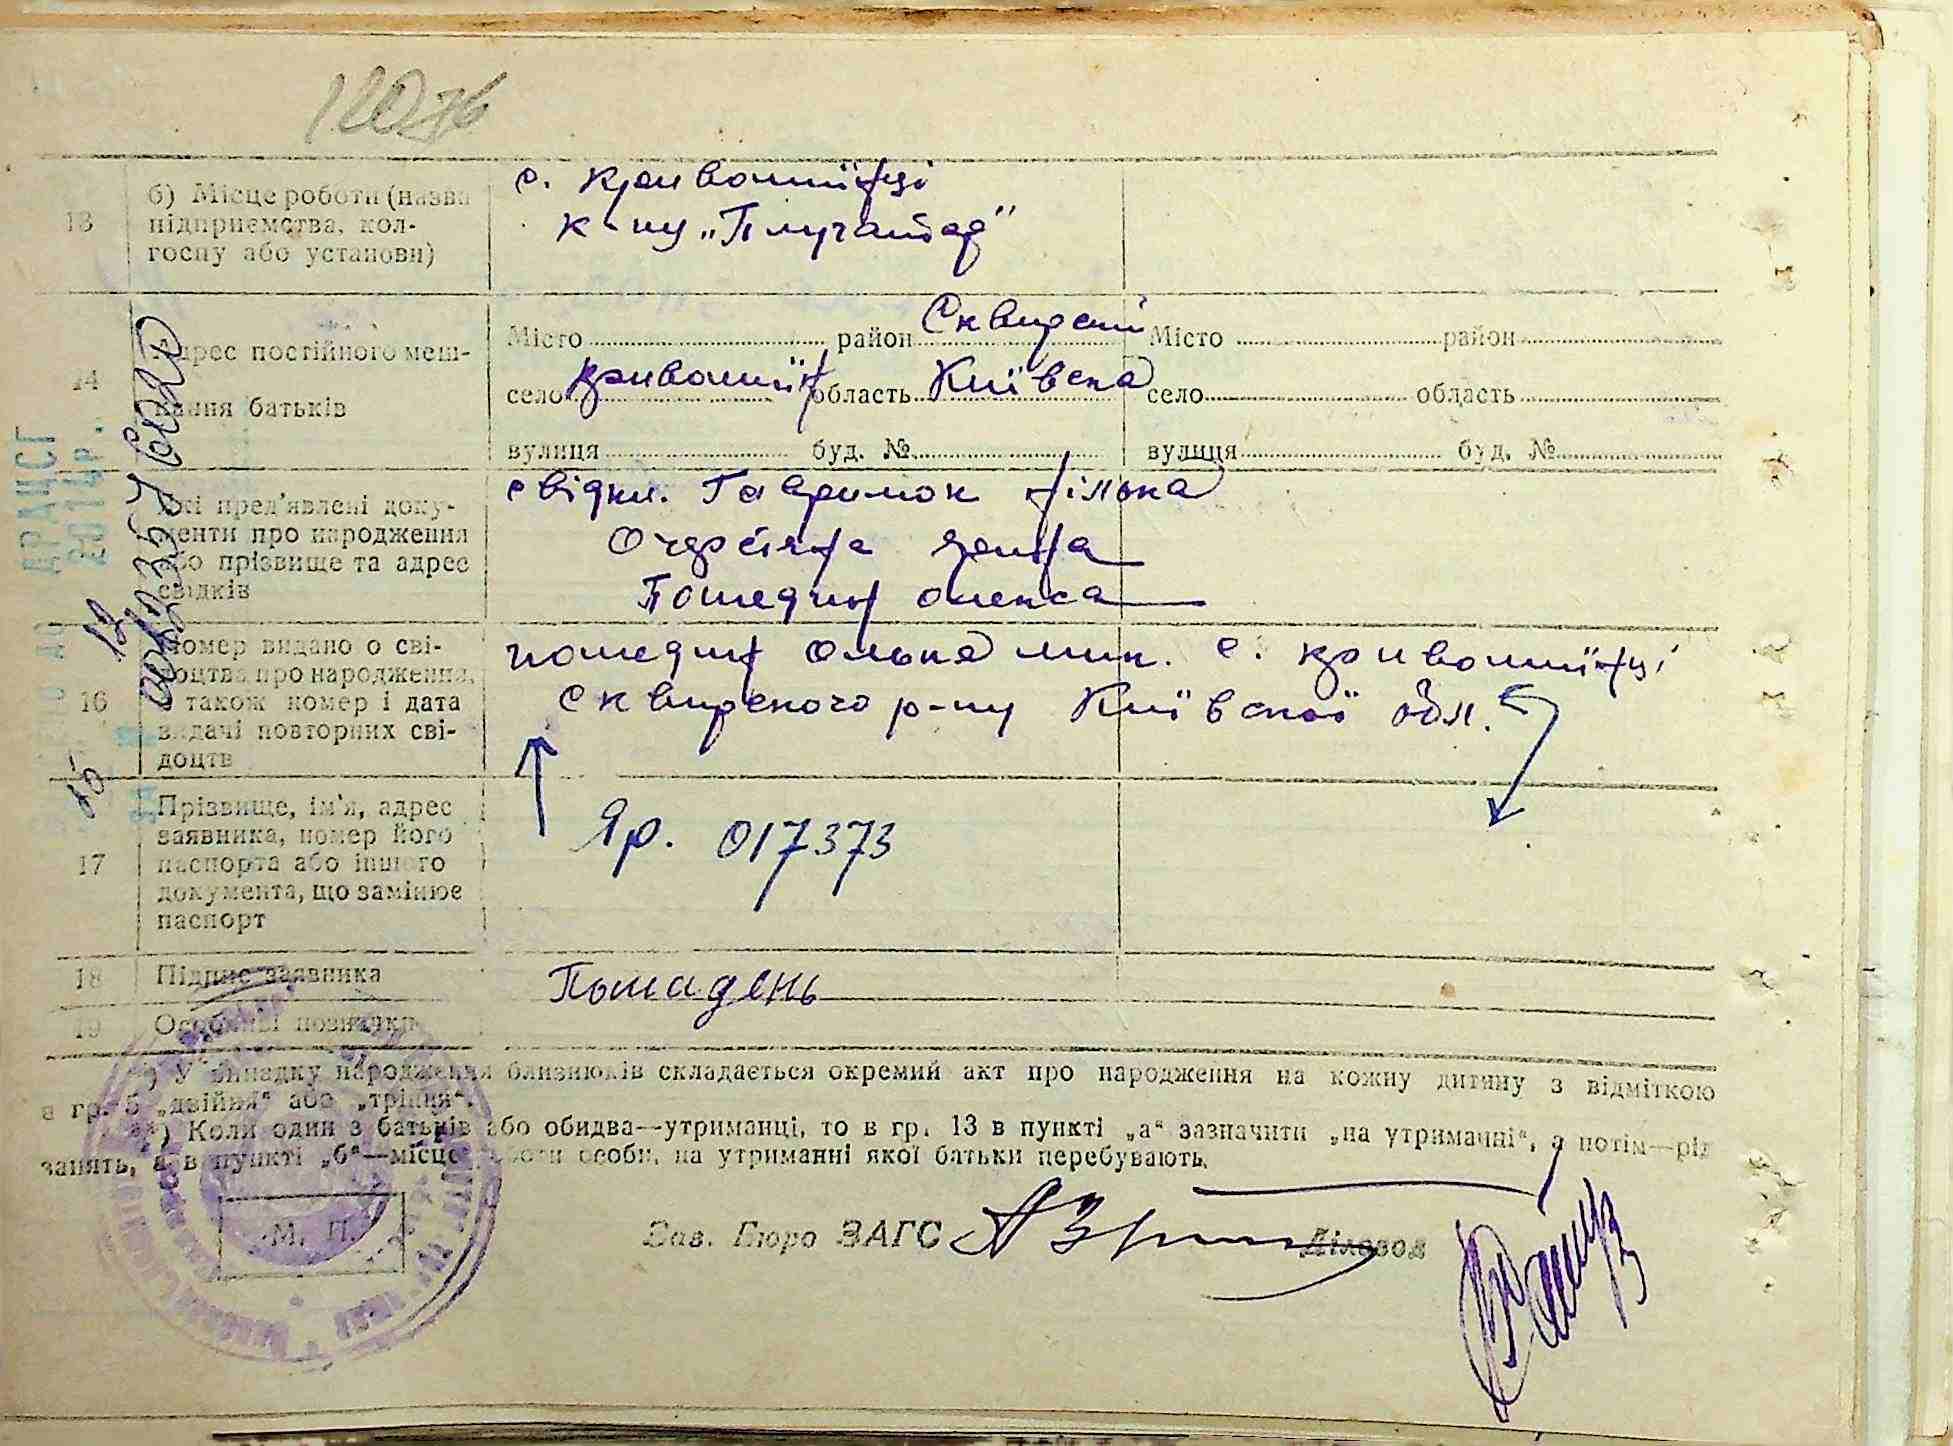 13 б) Місце роботи (назва підприємства, колгоспу або установи)
с. Кривошиїнці
к-пу „Плугатар"
14 Адрес постійного меш-
кання батьків
Місто район Сквирский Місто район
село Кривошиїн область Київска село область
вулиця буд. № вулиця буд. №
Які пред'явлені доку-
менти про народження
або прізвище та адрес
свідків
свідки. Гаврилюк
Яріна
Пошедин Олекса
16 Номер видано о сві-
доцтва про народження,
а також номер і дата
видачі повторних сві-
доцтв
Пошедин Олька меш. с. Кривошиїнці
Сквирского р-ну Київскої обл.
17 Прізвище, ім'я, адрес
заявника, номер його
паспорта або іншого
документа, що замінює
паспорт
Яр. 017373
18 Підпис заявника
19 Особливі позначки
*) У випадку народження близнюків складається окремий акт про народження на кожну дитину з відміткою
в гр. 5 „двійня" або „трійця".
**) Коли один з батьків або обидва—утриманці, то в гр. 13 в пункті „а" зазначити „на утриманні", а потім—рід
занять, а в пункті „б"—місце роботи особи, на утриманні якої батьки перебувають.
М. П.
Зав. Бюро ЗАГС Діловод
ДРАЦСГ
2014р.